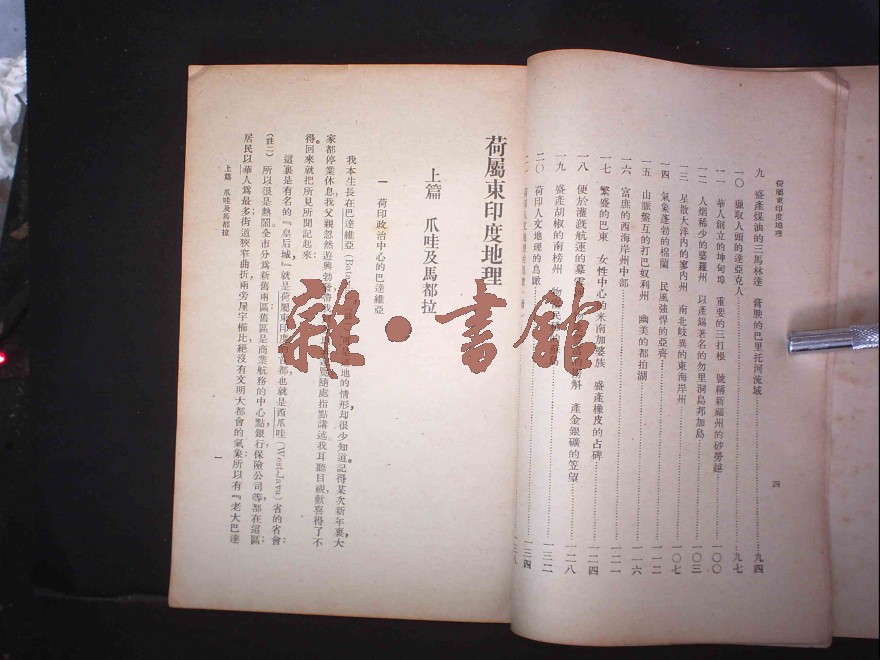 荷屬東印度地理
四
九 盛產煤油的三馬林達 膏腴的巴里托河流域……九四
一〇 獵取人頭的達亞克人……九七
一一 華人創立的坤甸埠 重要的三打根 號稱新福州的砂勞越……一〇〇
一二 人烟稀少的婆羅州 以產錫著名的勿里洞島邦加島……一〇三
一三 星散大洋內的寥內州 南北歧異的東海岸州……一〇七
一四 氣象蓬勃的棉蘭 民風強悍的亞齊……一一二
一五 山脈盤互的打巴奴利州 幽美的都拍湖……一一六
一六 富庶的西海岸州中部……一二一
一七 繁盛的巴東 女性中心的米南加婆族 盛產橡皮的占碑……一二四
一八 便於灌漑航運的慕 產金銀礦的笠望……一二八
一九 盛產胡椒的南榜州……一三二
二〇 荷印人文地理的鳥瞰……一三四
一三八
荷屬東印度地理
上篇 爪哇及馬都拉
一 荷印政治中心的巴達維亞
我本生長在巴達維亞 地的情形却很少知道。記得某次新年裏,大
家都停業休息,我父親忽然遊興勃發,帶我 覽,隨處指點講述,我耳聽目視,歡喜得了不
得。回來就把所見所聞記起來:
這裏是有名的『皇后城』就是荷屬東印度的首都,也就是西爪哇(West-Java)省的省會:
(註二)所以很是熱鬧。全市分爲新舊兩區:舊區是商業航務的中心點,銀行、保險公司等,都在這區;
居民以華人爲最多;街道狹窄曲折,兩旁屋宇櫛比,絕沒有文明大都會的氣象;所以有『老大巴達
上篇 爪哇及馬都拉
一
雜·書館